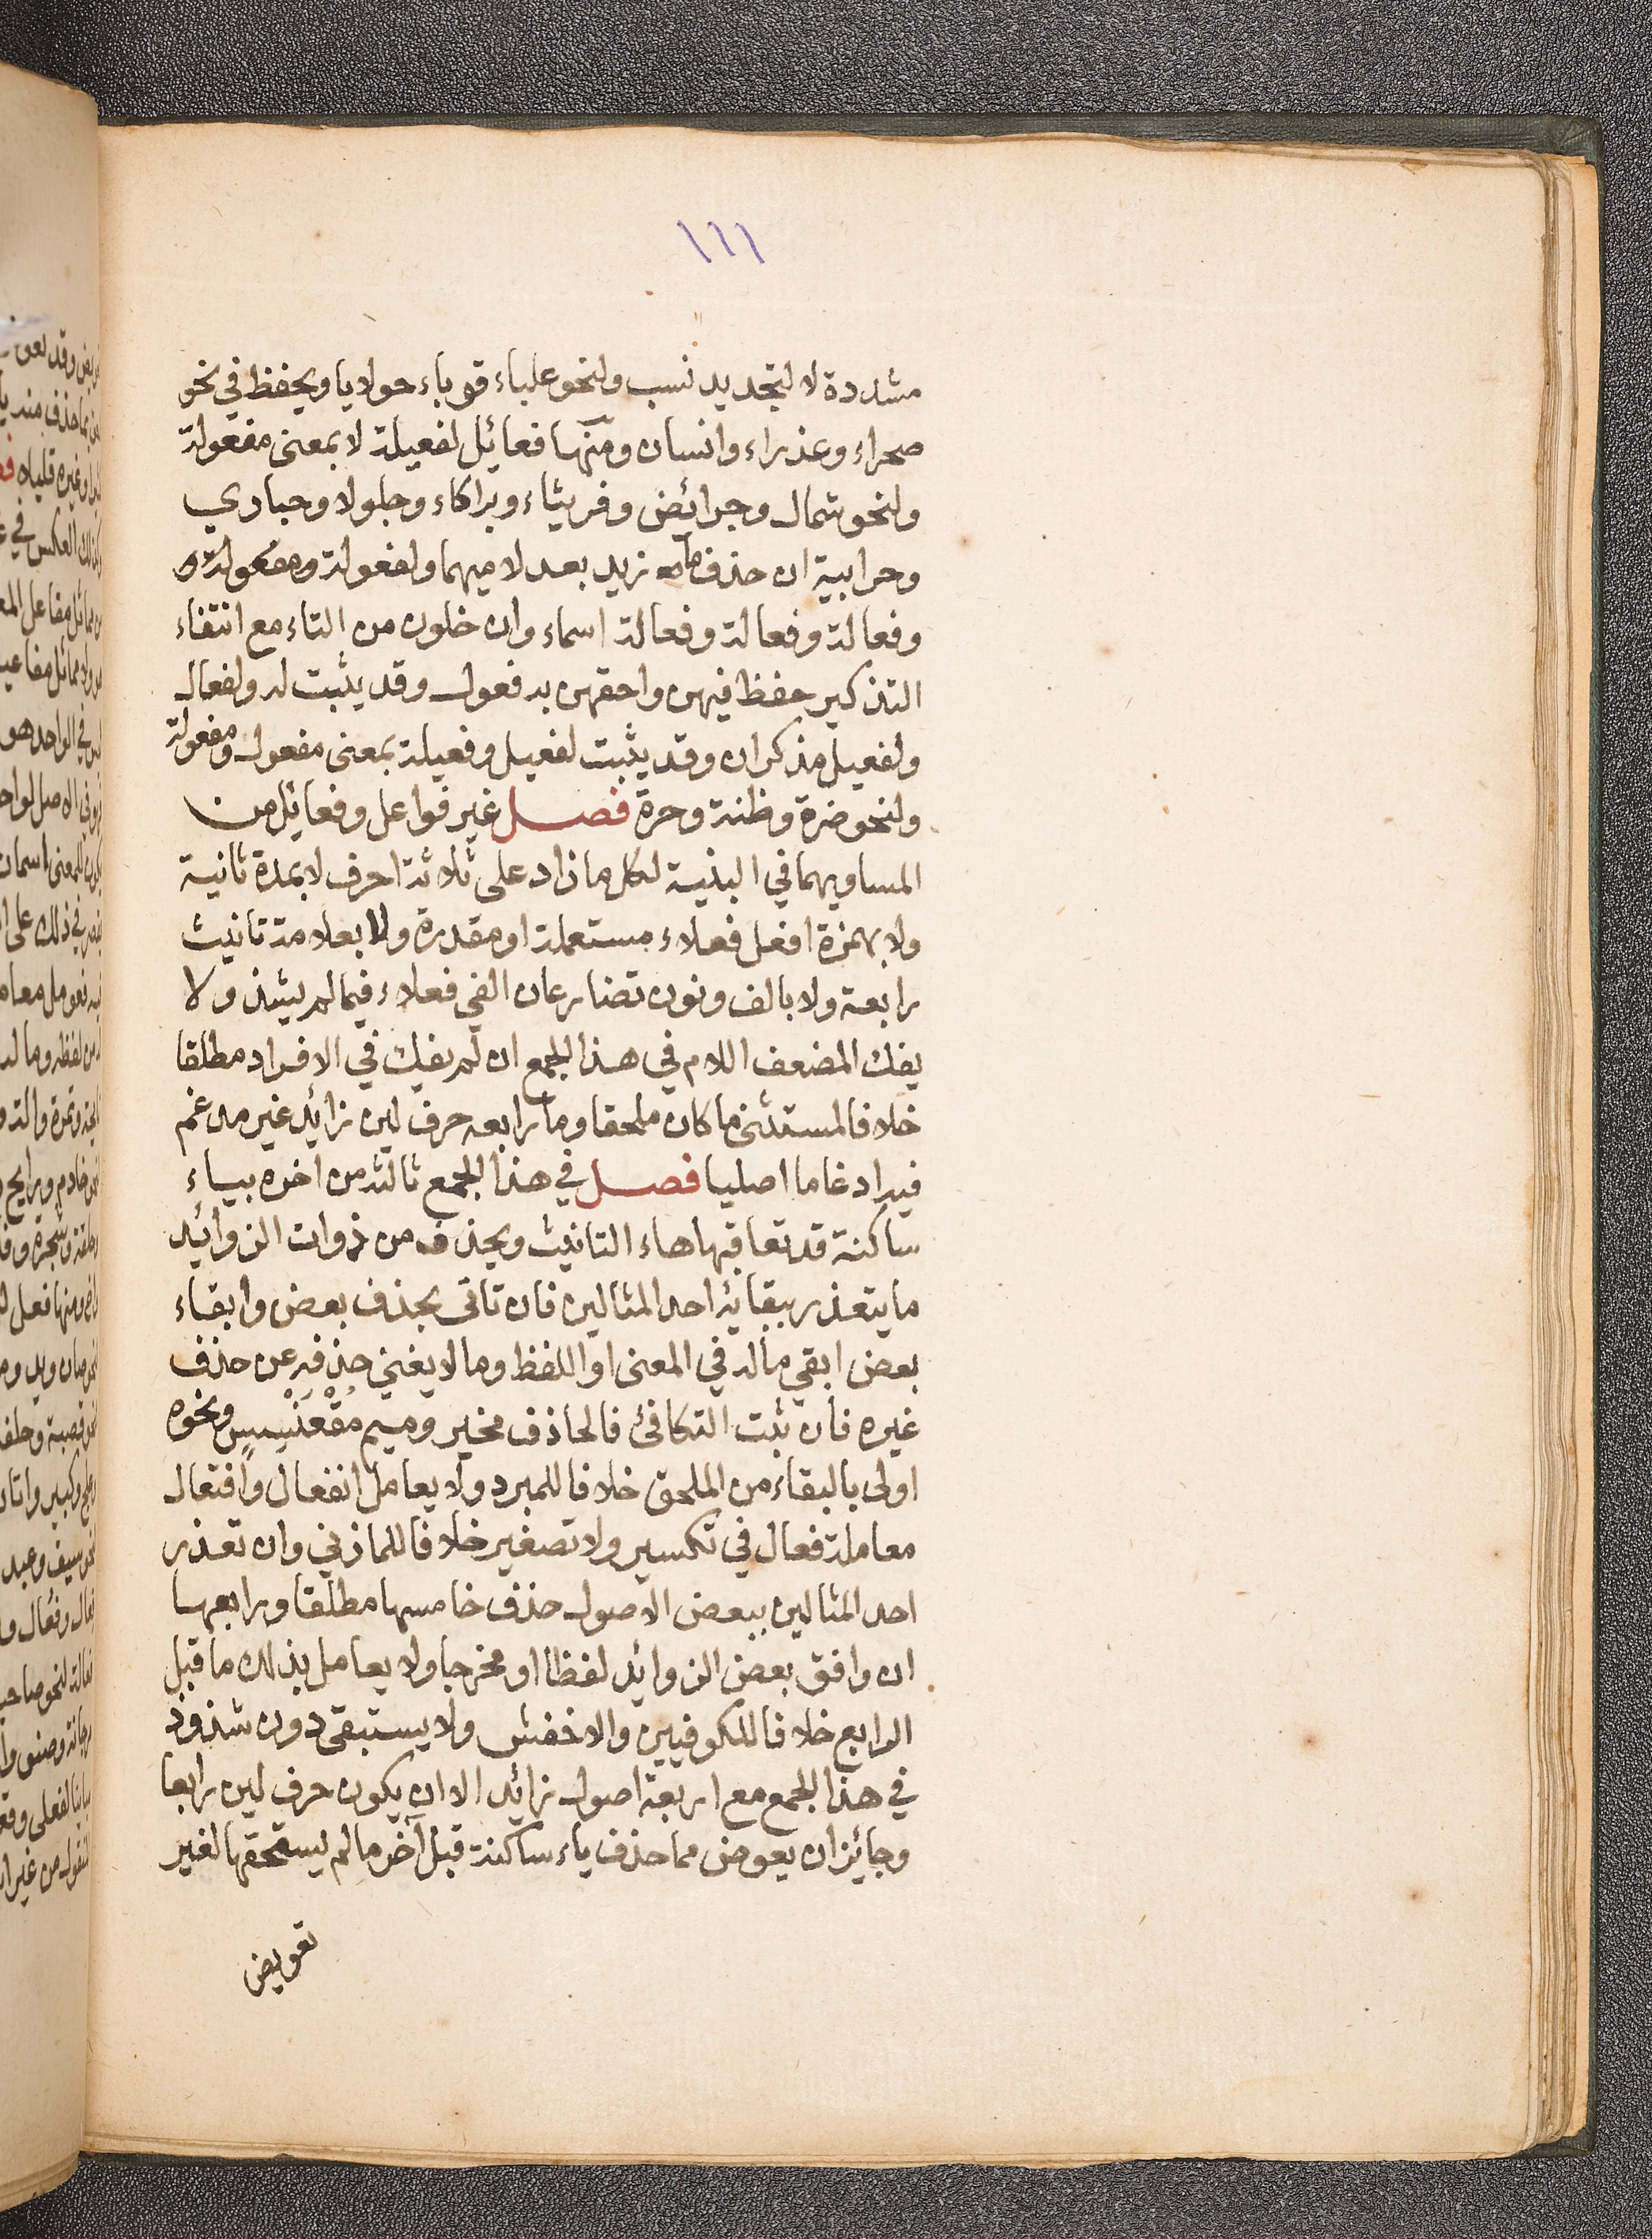 ١١١
مشددة لا لتجديد نسب ولنحو علباء قوباء حولايا ويحفظ في نحو
صحراء وعذراء وانسان ومنها فعائل لفعيلة لا بمعنى مفعولة
ولنحو شمال وجرائض وفريثاء وبراكاء وجلولا وحباري
وحرابية ان حذف ما زيد بعد لاميهما ولفعولة و
وفعالة وفعالة وفعالة اسماء وان خلون من التاء مع انتفاء
التذكير حفظ فيهن واحقهن به فعول وقد يثبت له ولفعال
ولفعيل مذكران وقد يثبت لفعيل وفعيلة بمعنى مفعول ومفعولة
ولنحو ضرة وظنة وحرة فصل غير فواعل وفعائل من
المساويهما في البنية لكل ما زاد على ثلاثة احرف لا بمدة ثانية
ولا بهمزة افعل فعلاء مستعملة او مقدرة ولا بعلامة تانيث
رابعة ولا بالف ونون تضارعان الفي فعلاء فيما لم يشذ ولا
يفك المضعف اللام في هذا الجمع ان لم يفك في الافراد مطلقا
خلافا لمستثنى ما كان ملحقا وما رابعه حرف لين زائد غير مدغم
فيه ادغاما اصليا فصل في هذا الجمع ثالثه من اخره بياء
ساكنة قد تعاقبها هاء التانيث ويحذف من ذوات الزوائد
ما يتعذر ببقائه احد المثالين فان تاتى بحذف بعض وابقاء
بعض ابقي ماله في المعنى او اللفظ وما لا يغني حذفه عن حذف
غيره فان ثبت التكافئ فالحاذف مخير وميم مُقْعَنْسِسٍ ونحوه
اولى بالبقاء من الملحق خلافا للمبرد ولا يعامل انفعال وافتعال
معاملة فعال في تكسير ولا تصغير خلافا للمازني وان تعذر
احد المثالين ببعض الاصول حذف خامسها مطلقا ورابعها
ان وافق بعض الزوائد لفظا او مخرجا ولا يعامل بذلك ما قبل
الرابع خلافا للكوفيين والاخفش ولا يستبقى دون شذوذ
في هذا الجمع مع اربعة اصول زائد الا ان يكون حرف لين رابعا
وجائز ان يعوض مما حذف ياء ساكنة قبل آخر ما لم يستحقها لغير
تعويض